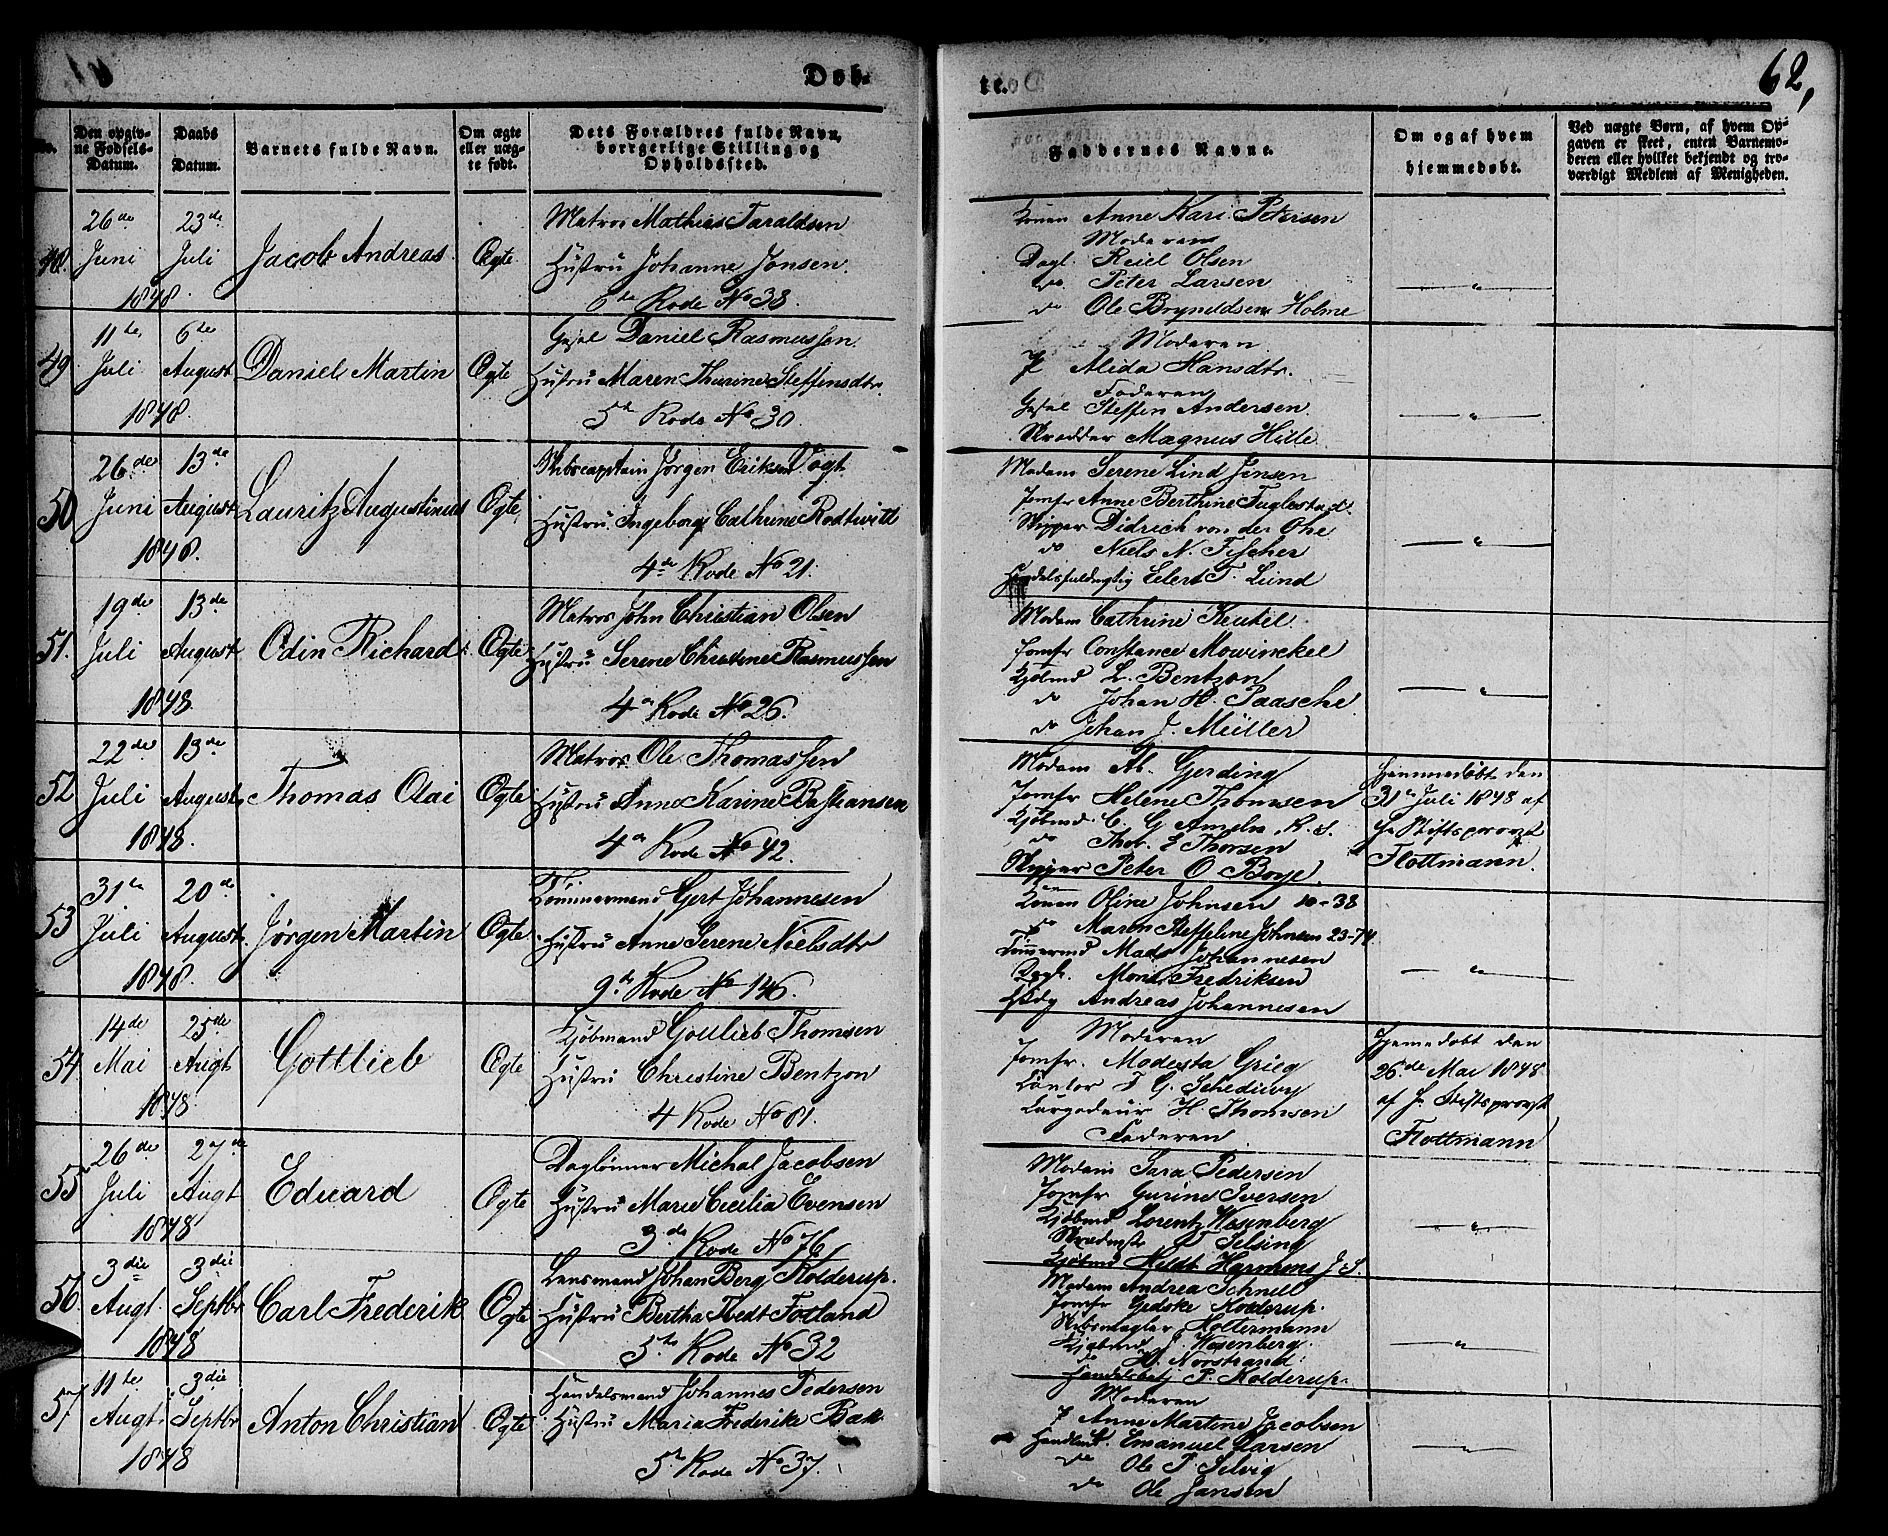 Døb-
te.
62,
No.
Den opgiv-
ne Fødsels-
Datum.
Daabs
Datum.
Barnets fulde Navn.
Om ægte
eller uæg-
te født.
Dets Forældres fulde Navn,
borgerlige Stilling og
Opholdsted.
Faddernes Navne.
Om og af hvem
hjemmedøbt.
Ved uægte Børn, af hvem Op-
gaven er skeet, enten Barnemo-
deren eller hvilket bekjendt og tro-
værdigt Medlem af Menigheden.
48.
26de
Juni
1848.
23de
Juli
Jacob Andreas
Ægte
Matros Mathias Taraldsen
Hustru Johanne Jonsen.
6te Rode No 38
Konen Anne Kari Petersen
Moderen
Dagl. Reiel Olsen
do. Peter Larsen
do Ole Bryneldsen Holme
49
11te
Juli
1848.
6te
August
Daniel Martin
Ægte
Gesel Daniel Rasmussen.
Hustru Maren Thurine Steffensdtr.
5te Rode No 30.
Moderen
P Alida Hansdtr.
Faderen
Gesel Steffen Andersen.
Skredder Magnus Hille
50
26de
Juni
1848.
13de
August
Lauritz Augustinus
Ægte
Skibscaptain Jørgen Eriksen Vogt
Hustru Ingeborg Cathrine Rodtwitt
4de Rode No 21.
Madam Serene Lind Jensen
Jomfr Anne Berthine Fuglestad.
Skipper Didrich von der Ohe
do Niels N. Fischer
Handelsfuldmgtig Eilert T. Lund
51.
19de
Juli
1848.
13de
August
Odin Richard
Ægte
Matros John Christian Olsen
Hustru Serene Christine Rasmussen
4de Rode No 26.
Madam Cathrine Keutel.
Jomfr Constance Mowinckel
Kjøbmd L. Bentzon
do Johan H. Paasche
do Johan J. Müller
52
22de
Juli
1848.
13de
August
Thomas Olai
Ægte
Matros Ole Thomassen
Hustru Anna Karine Bastiansen
4de Rode No 42.
Madam Ab. Gerding
Jomfr Helene Thomsen
Kjøbmd. C. G. Ameln. R. S.
do Thor. E Thorsen
Skipper Peter O Boye.
Hjemmedøbt den
31te Juli 1848 af
Hr Stiftsprovst
Flottmann.
53
31te
Juli
1848.
20de
August
Jørgen Martin
Ægte
Tømmermand Gert Johannesen
Hustru Anne Serene Nielsdtr
9de Rode No 146.
Konen Oline Johnsen 10-38
do Maren Steffeline Johnsen 23-74
Tømermd Mads Johannesen
Mons Fredriksen
Andreas Johannesen
54
14de
Mai
1848
25de
Augt
Gottlieb
Ægte
Kjøbmand Gottlieb Thomsen
Hustru Christine Bentzon
4 Rode No 81.
Moderen
Jomfr. Modesta Grieg
Cantor F. G. Schediwy
Cargadeur H. Thomsen
Faderen
Hjemedøbt den
26de Mai 1848
af Hr. Stiftsprovst
Flottmann
55
26de
Juli
1848
27de
Augt
Eduard
Ægte
Daglønner Michal Jacobsen
Hustru Marie Cecilia Evensen
3de Rode No 76
Madam Sara Pedersen
Jomfr Gurine Iversen
Kjøbmd Lorentz Wesenberg
Selsing
Kjøbmd Hildt Harmens J. S.
56
3die
Augt.
1848
3die
Septbr
Carl Frederik
Ægte
Lensmand Johan Berg Kolderup.
Hustru Bertha Tvedt Fotland
5te Rode No 32
Madam Andrea Schnell
Jomfr Gedske Kolderup.
Skibsmægler Holtermann
Kjøbmd J. Wesenberg.
do H. Norstrand.
Handelsbetj P. Kolderup.
57
11te
Augt
1848
3die
Septbr
Anton Christian
Ægte
Handelsmand Johannes Pedersen
Hustru Maria Frederike Bak
5te Rode No 37.
Moderen
P Anne Martine Jacobsen
Handlend. Emanuel Larsen
do Ole P. Selvig
do Ole Jansen